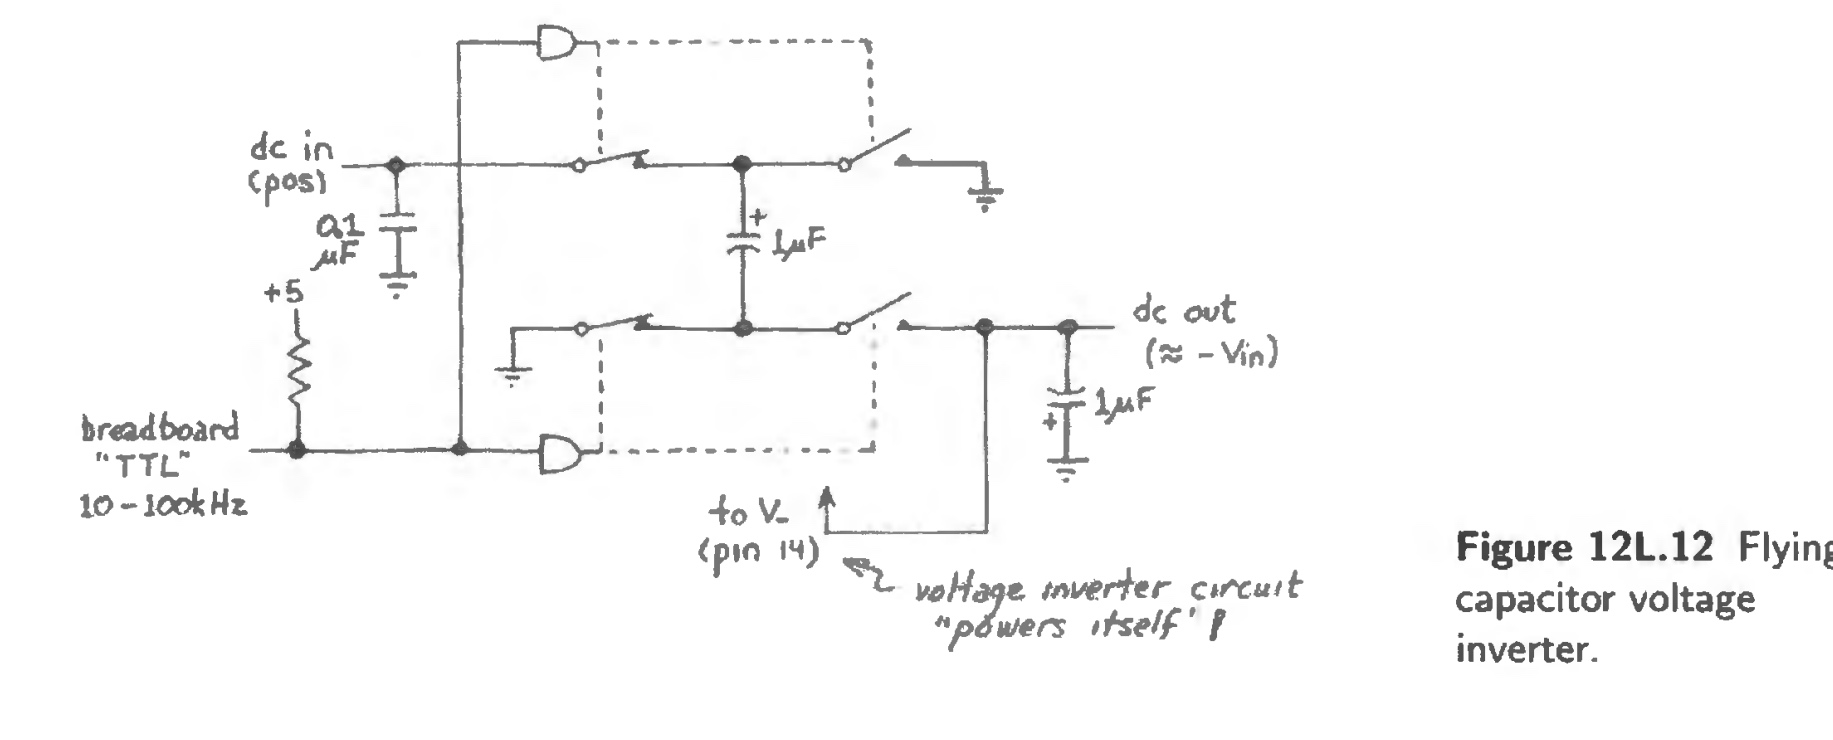 dc in
(pos)
0.1
μF
+
1μF
+5
dc out
(≈ -Vin)
+
1μF
breadboard
"TTL"
10-100kHz
to V-
(pin 14)
voltage inverter circuit
"powers itself"!
Figure 12L.12 Flying
capacitor voltage
inverter.